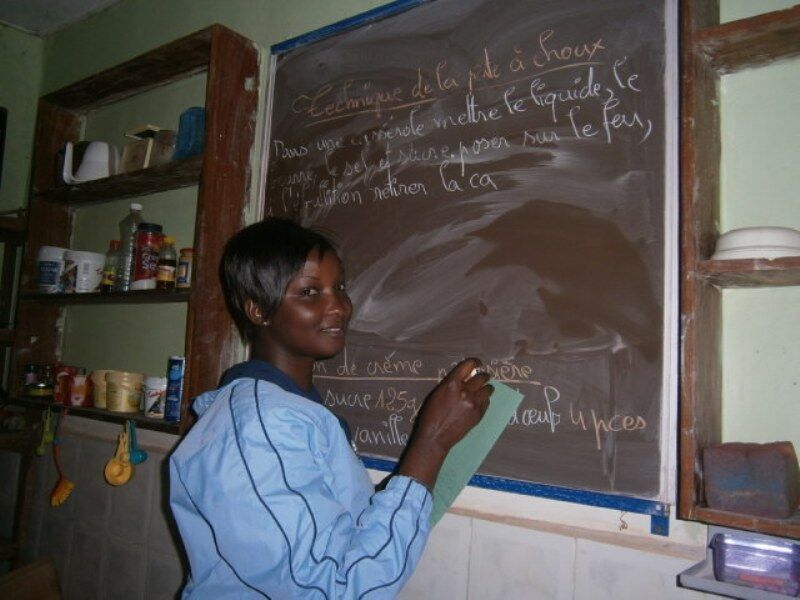 Technique de la pâte à choux
Dans une casserole mettre le liquide, le
le sel et sucre. poser sur le feu,
à l'ébullition retirer la ca
de crème
sucre 125g d'œuf 4 pces
vanille